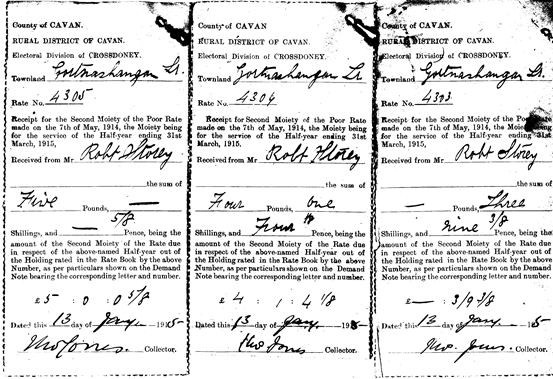 County of CAVAN.
RURAL DISTRICT OF CAVAN.
Electoral Division of CROSSDONEY.
Townland Gortnashangan Lr.
Rate No. 4305
Receipt for the Second Moiety of the Poor Rate
made on the 7th of May, 1914, the Moiety being
for the service of the Half-year ending 31st
March, 1915.
Received from Mr Robt Storey
the sum of
Five Pounds, —
Shillings, and — 5/8 Pence, being the
amount of the Second Moiety of the Rate due
in respect of the above-named Half-year out
of the Holding rated in the Rate Book by the above
Number, as per particulars shown on the Demand
Note bearing the corresponding letter and number.
£ 5 : 0 : 0 5/8
Dated this 13 day of Jany. 1915
Thos Jones. Collector.
County of CAVAN.
RURAL DISTRICT OF CAVAN.
Electoral Division of CROSSDONEY.
Townland Gortnashangan Lr
Rate No. 4304
Receipt for the Second Moiety of the Poor Rate
made on the 7th of May, 1914, the Moiety being
for the service of the Half-year ending 31st
March, 1915.
Received from Mr Robt Storey
the sum of
Four Pounds, one
Shillings, and Four 1/8 Pence, being the
amount of the Second Moiety of the Rate due
in respect of the above-named Half-year out of
the Holding rated in the Rate Book by the above
Number, as per particulars shown on the Demand
Note bearing the corresponding letter and number.
£ 4 : 1 : 4 1/8
Dated this 13 day of Jany 1915
Thos Jones Collector.
County of CAVAN.
RURAL DISTRICT OF CAVAN.
Electoral Division of CROSSDONEY.
Townland Gortnashangan Lr.
Rate No. 4303
Receipt for the Second Moiety of the Poor Rate
made on the 7th of May, 1914, the Moiety being
for the service of the Half-year ending 31st
March, 1915.
Received from Mr Robt Storey
the sum of
— Pounds, Three
Shillings, and nine 3/8 Pence, being the
amount of the Second Moiety of the Rate due
in respect of the above-named Half-year out of
the Holding rated in the Rate Book by the above
Number, as per particulars shown on the Demand
Note bearing the corresponding letter and number.
£ — : 3/9 3/8
Dated this 13 day of Jany 1915
Thos. Jones. Collector.